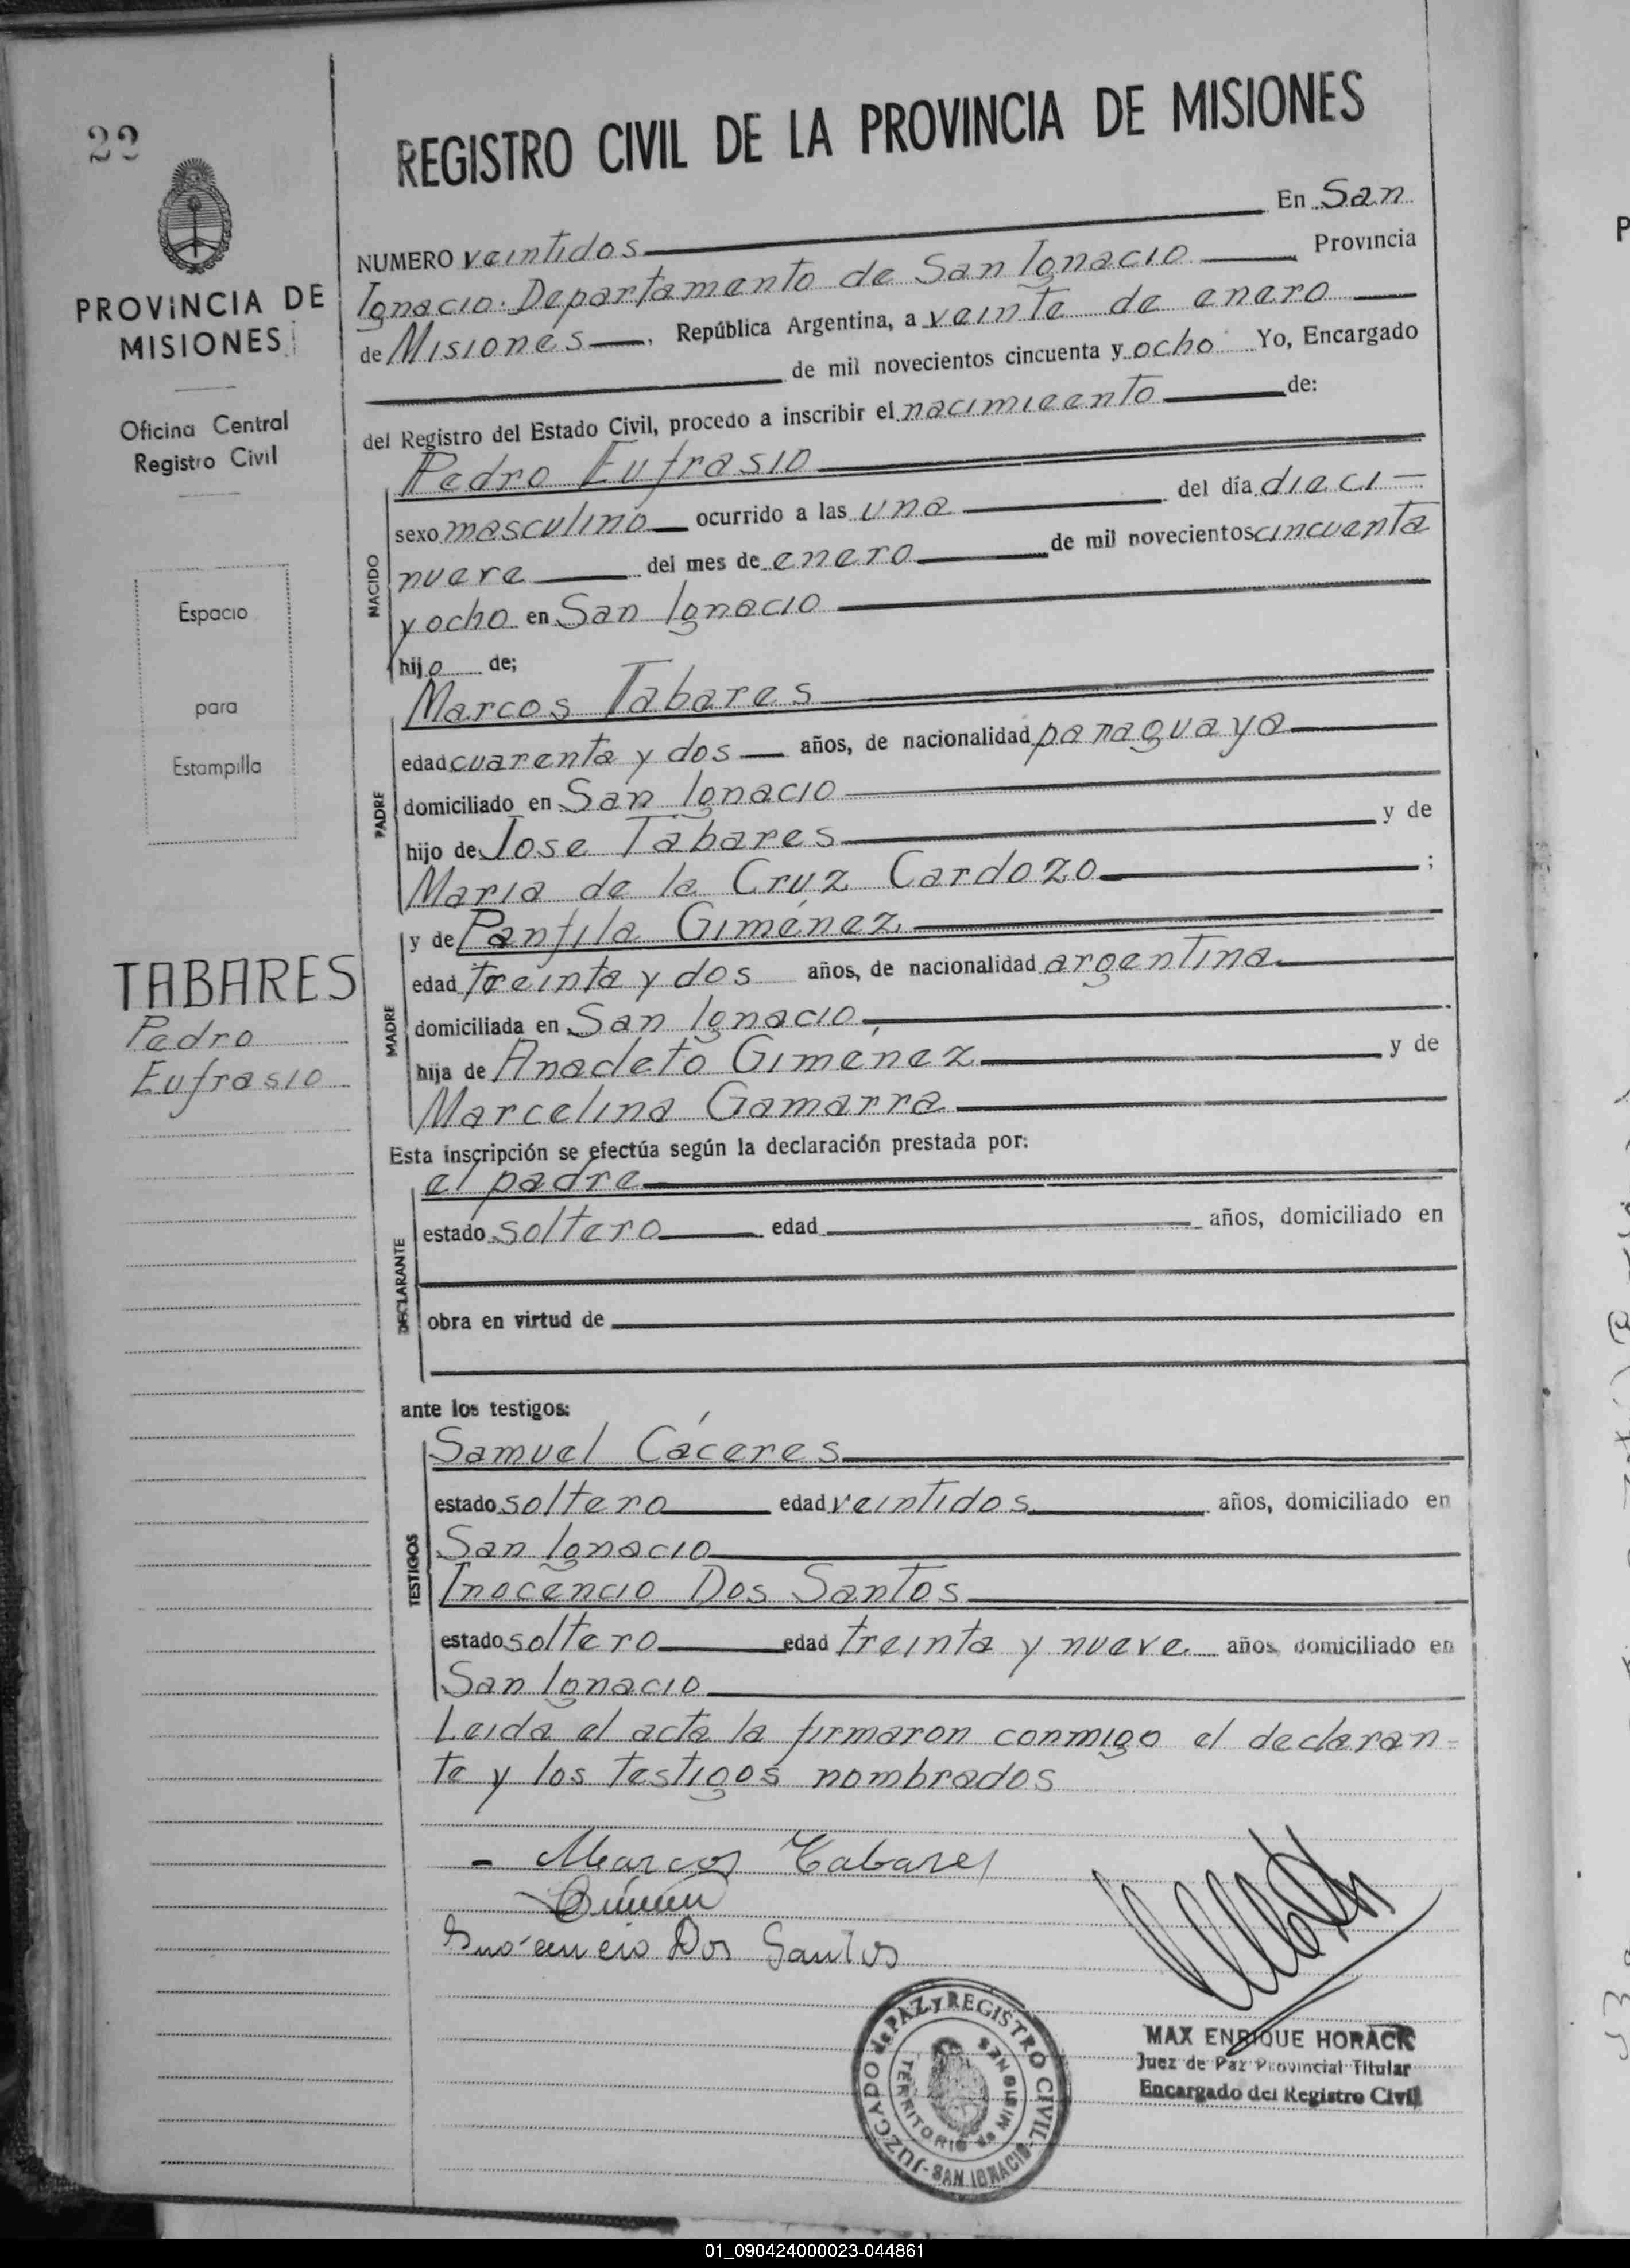 22
PROVINCIA DE
MISIONES
Oficina Central
Registro Civil
Espacio
para
Estampilla
TABARES
Pedro
Eufrasio
REGISTRO CIVIL DE LA PROVINCIA DE MISIONES
NUMERO veintidos En San
Ignacio. Departamento de San Ignacio Provincia
de Misiones, República Argentina, a veinte de enero
de mil novecientos cincuenta y ocho Yo, Encargado
del Registro del Estado Civil, procedo a inscribir el nacimieento de:
Pedro Eufrasio
NACIDO
sexo masculino ocurrido a las una del día dieci=
nueve del mes de enero de mil novecientos cincuenta
y ocho en San Ignacio
hijo de;
Marcos Tabares
PADRE
edad cuarenta y dos años, de nacionalidad paraguaya
domiciliado en San Ignacio
hijo de Jose Tabares y de
Maria de la Cruz Cardozo ;
y de Panfila Giménez
MADRE
edad treinta y dos años, de nacionalidad argentina
domiciliada en San Ignacio,
hija de Anacleto Gimenez y de
Marcelina Gamarra
Esta inscripción se efectúa según la declaración prestada por:
el padre
DECLARANTE
estado soltero edad años, domiciliado en
obra en virtud de
ante los testigos:
Samuel Cáceres
TESTIGOS
estado soltero edad veintidos años, domiciliado en
San Ignacio
Inocencio Dos Santos
estado soltero edad treinta y nueve años domiciliado en
San Ignacio
Leida el acta la firmaron conmigo el declaran=
te y los testigos nombrados
- Marcos Tabares
Inocencio Dos Santos
JUZGADO de PAZ y REGISTRO CIVIL - SAN IGNACIO -
TERRITORIO de MISIONES
MAX ENRIQUE HORACK
Juez de Paz Provincial Titular
Encargado del Registro Civil
01_090424000023-044861